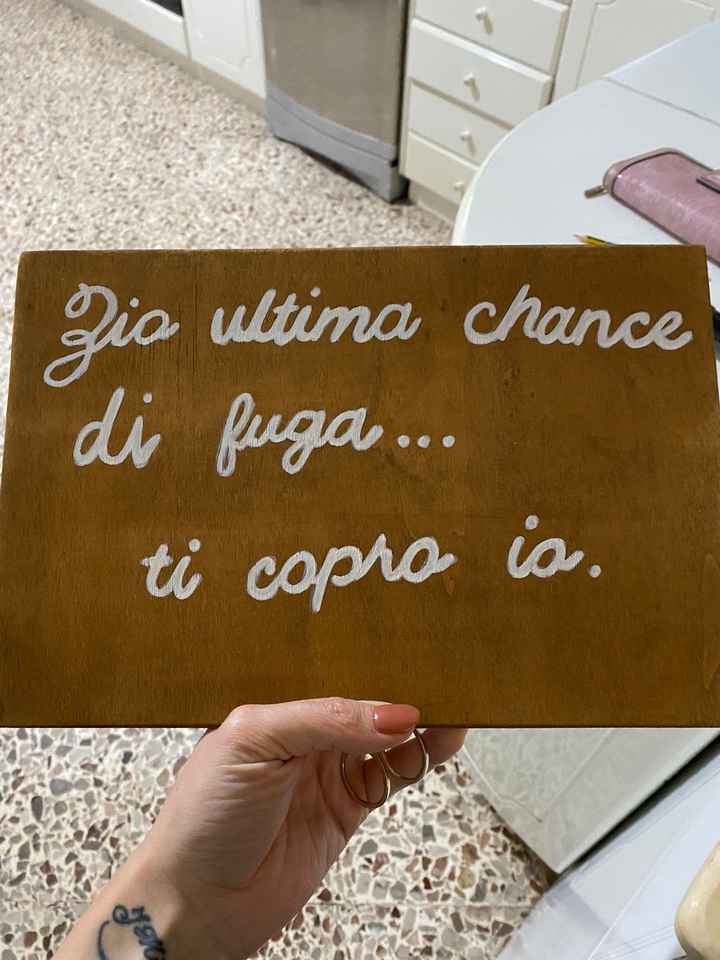 Zio ultima chance
di fuga...
ti copro io.